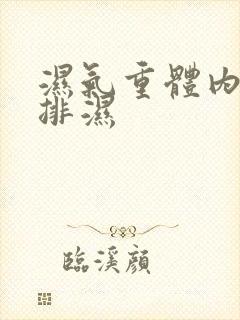 濕氣重體內
排濕
臨溪顏